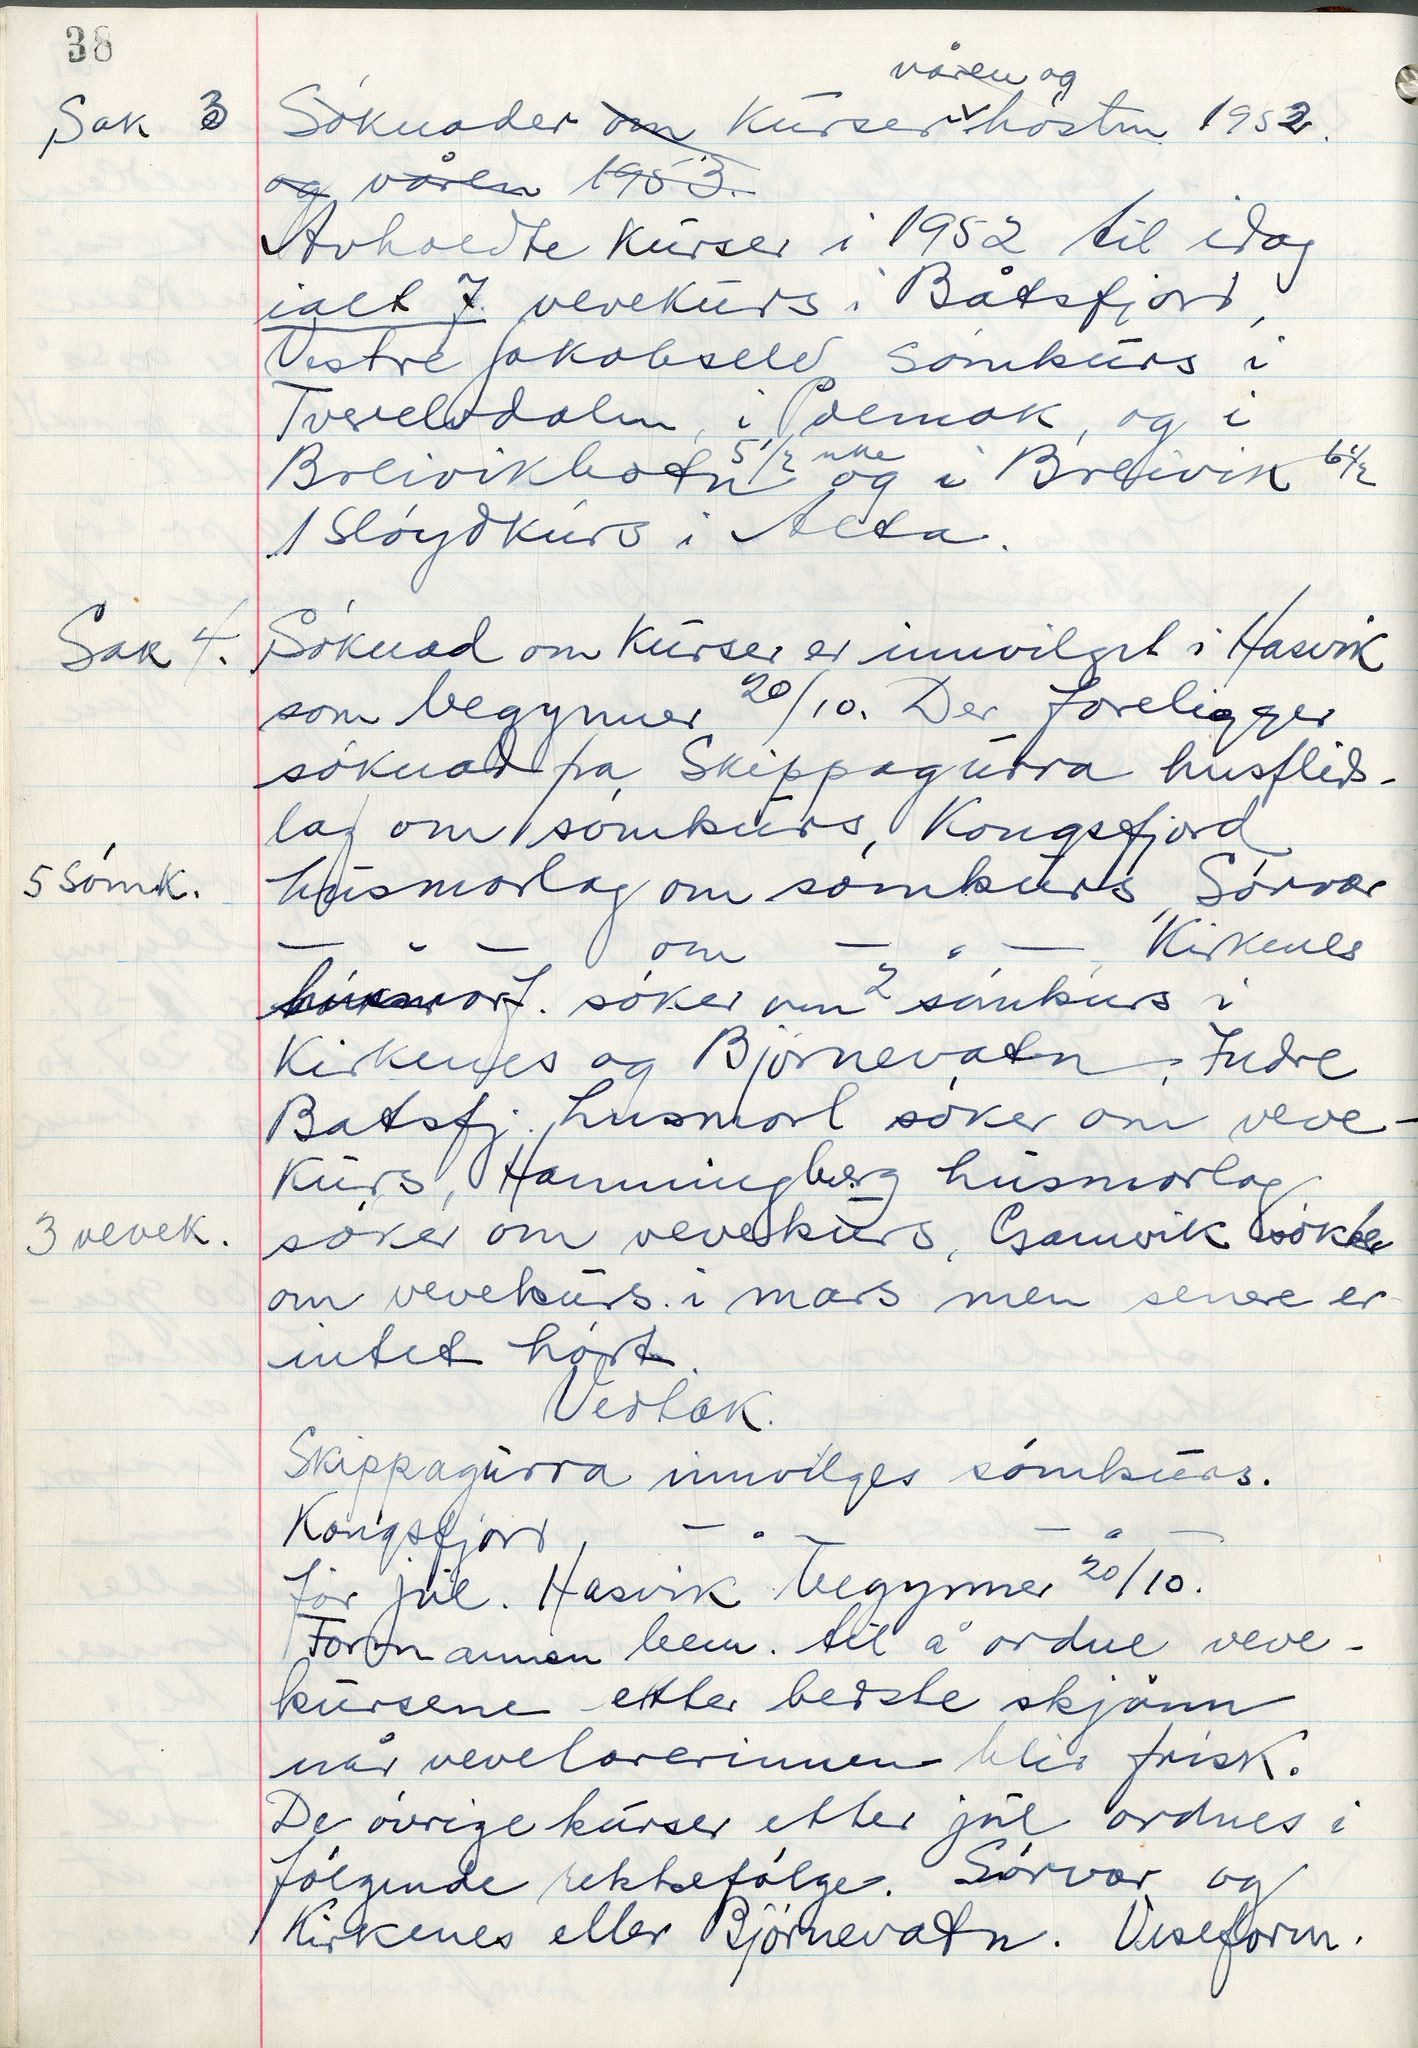 38
våren og
Sak 3 Söknader om Kurser hösten 1952.
og våren 1953.
Avholdte Kurser i 1952 til idag
ialt 7. vevekurs i Båtsfjord,
Vestre Jakobselv sömkurs i
Tverelvdalen, i Polmak, og i
5 1/2 uke
Breivikbotn og i Breivik 6 1/2
1 Slöydkurs i Alta.
Sak 4. Söknad om Kurser er innvilget i Hasvik
som begynner 20/10. Der foreligger
söknad fra Skippagurra husflids-
lag om sömkurs, Kongsfjord
5 sömk. husmorlag om sömkurs, Sörvær
— " — om — " —, Kirkenes
husmorl. söker om 2 sömkurs i
Kirkenes og Björnevatn, Indre
Batsfj. husmorl söker om veve-
kurs, Hamningberg husmorlag
3 vevek. söker om vevekurs, Gamvik sökte
om vevekurs i mars men senere er
intet hört.
Vedtak.
Skippagurra innvilges sömkurs.
Kongsfjord, — " — — " —
för jul. Hasvik begynner 20/10.
Formannen bem. til å ordne veve-
kursene etter bedste skjönn
når vevelærerinnen blir frisk.
De övrige kurser etter jul ordnes i
fölgende rekkefölge. Sörvær og
Kirkenes eller Björnevatn. Viseform.